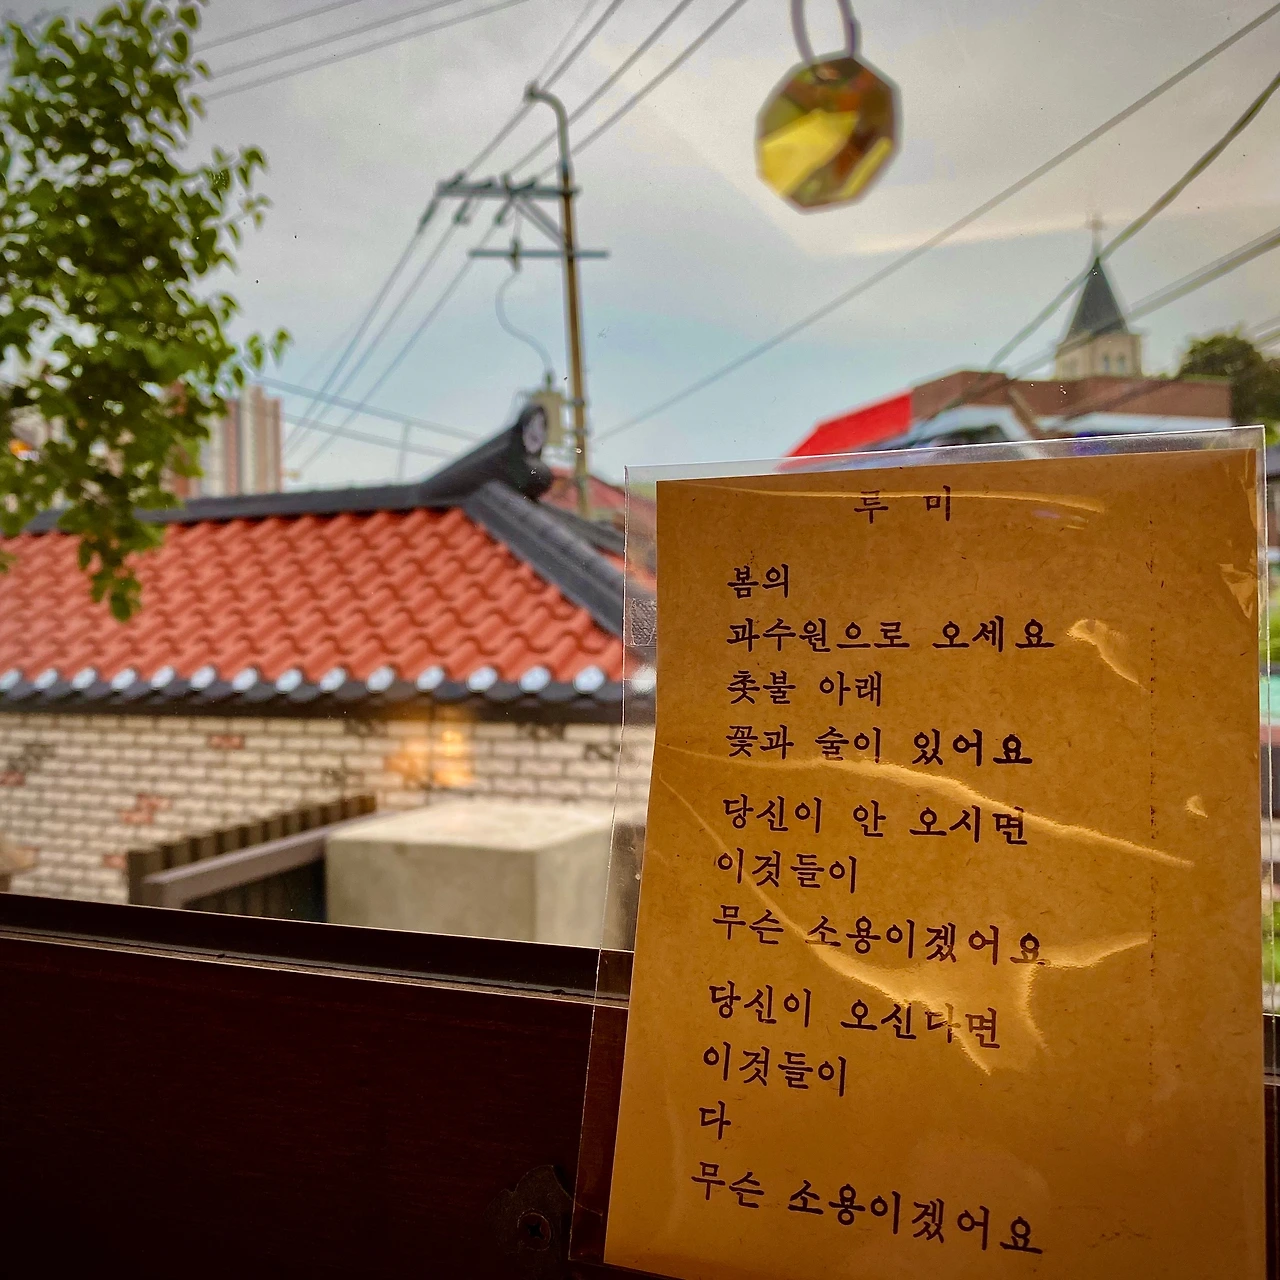 루 미
봄의
과수원으로 오세요
촛불 아래
꽃과 술이 있어요
당신이 안 오시면
이것들이
무슨 소용이겠어요
당신이 오신다면
이것들이
다
무슨 소용이겠어요